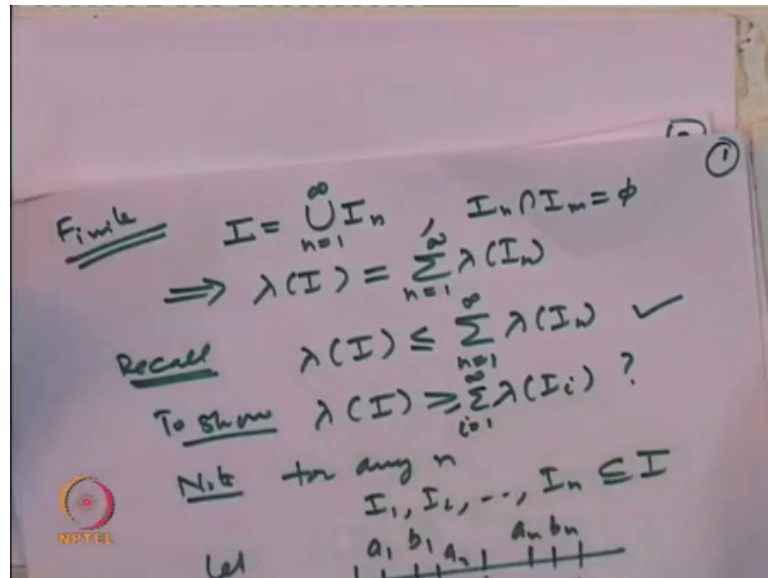 ①
Finite I = ∞⋃n=1 I_n , I_n ∩ I_m = ϕ
⟹ λ(I) = ∞∑n=1 λ(I_n)
Recall λ(I) ≤ ∞∑n=1 λ(I_n) ✓
To show λ(I) ≥ ∞∑i=1 λ(I_i) ?
Note for any n
I_1, I_2, ..., I_n ⊆ I
Let a_1 b_1 a_2 a_n b_n
NPTEL